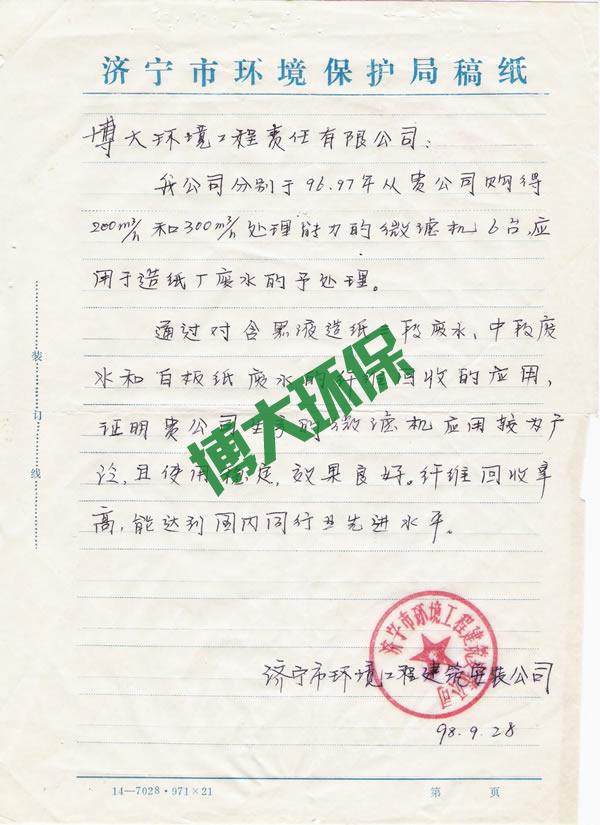 济宁市环境保护局稿纸
博大环境工程责任有限公司:
我公司分别于96.97年从贵公司购得
200m³/h和300m³/h处理能力的微滤机6台,应
用于造纸厂废水的予处理。
通过对含黑液造纸三段废水、中段废
水和白板纸废水的纤维回收的应用,
证明贵公司生产的微滤机应用较为广
泛,且使用稳定,效果良好。纤维回收率
高,能达到国内同行业先进水平。
博大环保
装订线
济宁市环境工程建筑安装公司
济宁市环境工程建筑安装公司
98.9.28
14—7028·971×21
第 页